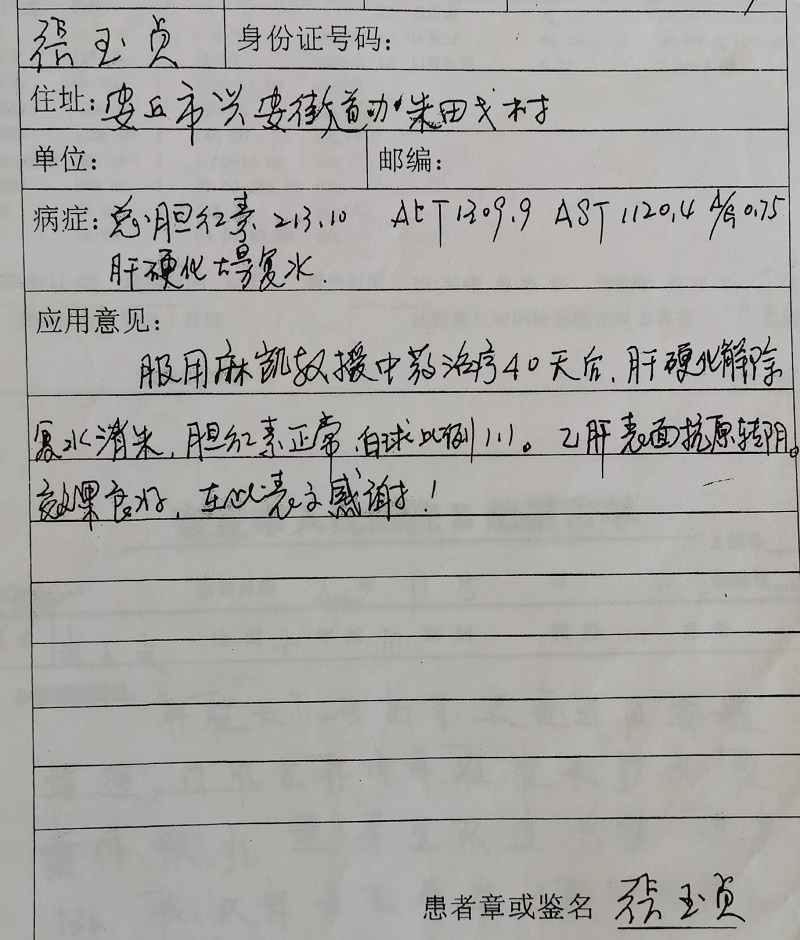 张玉贞 身份证号码:
住址: 安丘市兴安街道办朱田戈村
单位: 邮编:
病症: 总胆红素 213.10 ALT 1309.9 AST 1120.4 A/G 0.75
肝硬化大量复水.
应用意见:
服用麻凯奴援中药治疗40天后,肝硬化解除
复水消失,胆红素正常,白球比例1:1。乙肝表面抗原转阴。
效果良好,在此表示感谢!
患者章或鉴名 张玉贞